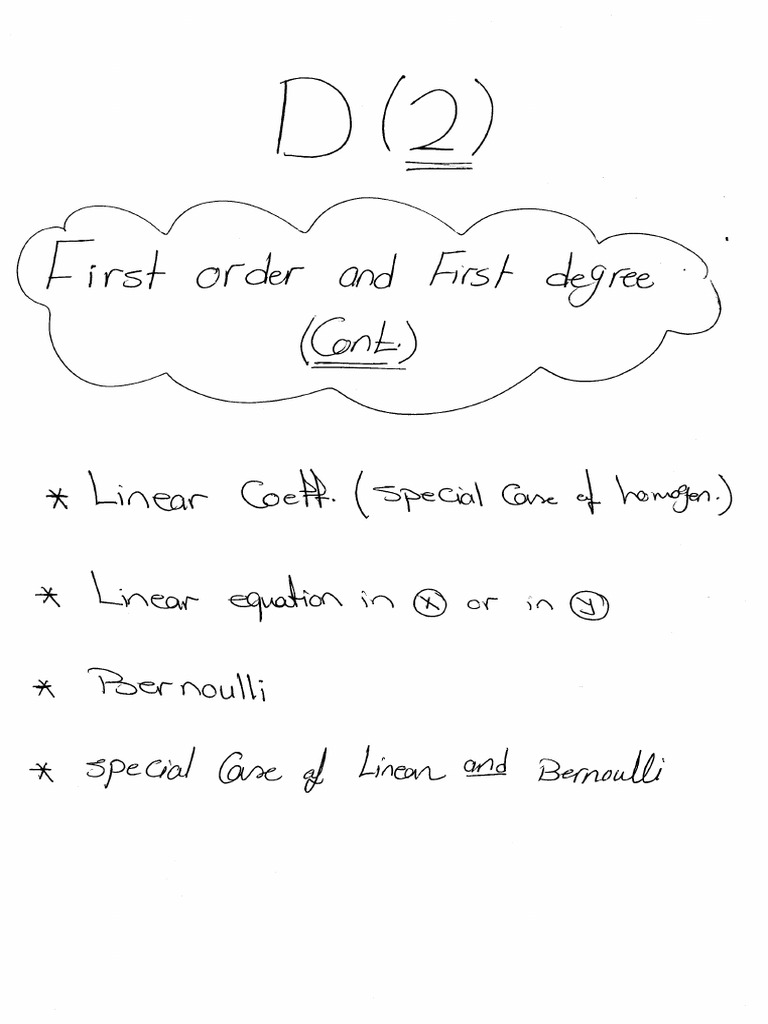 D (2)
First order and First degree
(Cont.)
* Linear Coeff. (special Case of homogen.)
* Linear equation in x or in y
* Bernoulli
* special Case of Linear and Bernoulli